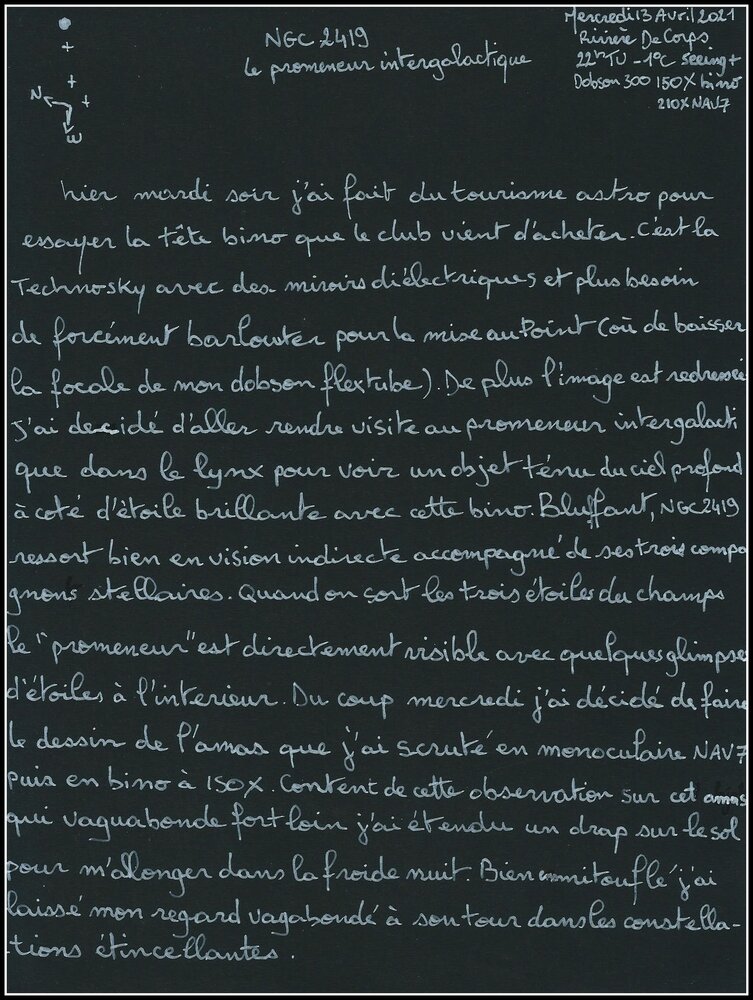 NGC 2419
le promeneur intergalactique
Mercredi 13 Avril 2021
Rivière De Corps
22h TU -1°C seeing +
Dobson 300 150X bino
210X NAV7
N
W
hier mardi soir j'ai fait du tourisme astro pour
essayer la tête bino que le club vient d'acheter. C'est la
Technosky avec des miroirs diélectriques et plus besoin
de forcément barlowter pour la mise au Point (où de baisser
la focale de mon dobson flextube). De plus l'image est redressée
J'ai decidé d'aller rendre visite au promeneur intergalacti
que dans le lynx pour voir un objet ténu du ciel profond
à coté d'étoile brillante avec cette bino. Bluffant, NGC2419
ressort bien en vision indirecte accompagné de ses trois compa
gnons stellaires. Quand on sort les trois étoiles du champs
le "promeneur" est directement visible avec quelques glimpse
d'étoiles à l'interieur. Du coup mercredi j'ai décidé de faire
le dessin de l'amas que j'ai scruté en monoculaire NAV7
puis en bino à 150X. Content de cette observation sur cet amas
qui vaguabonde fort loin j'ai étendu un drap sur le sol
pour m'allonger dans la froide nuit. Bien emmitouflé j'ai
laissé mon regard vagabondé à son tour dans les constella-
-tions étincellantes.